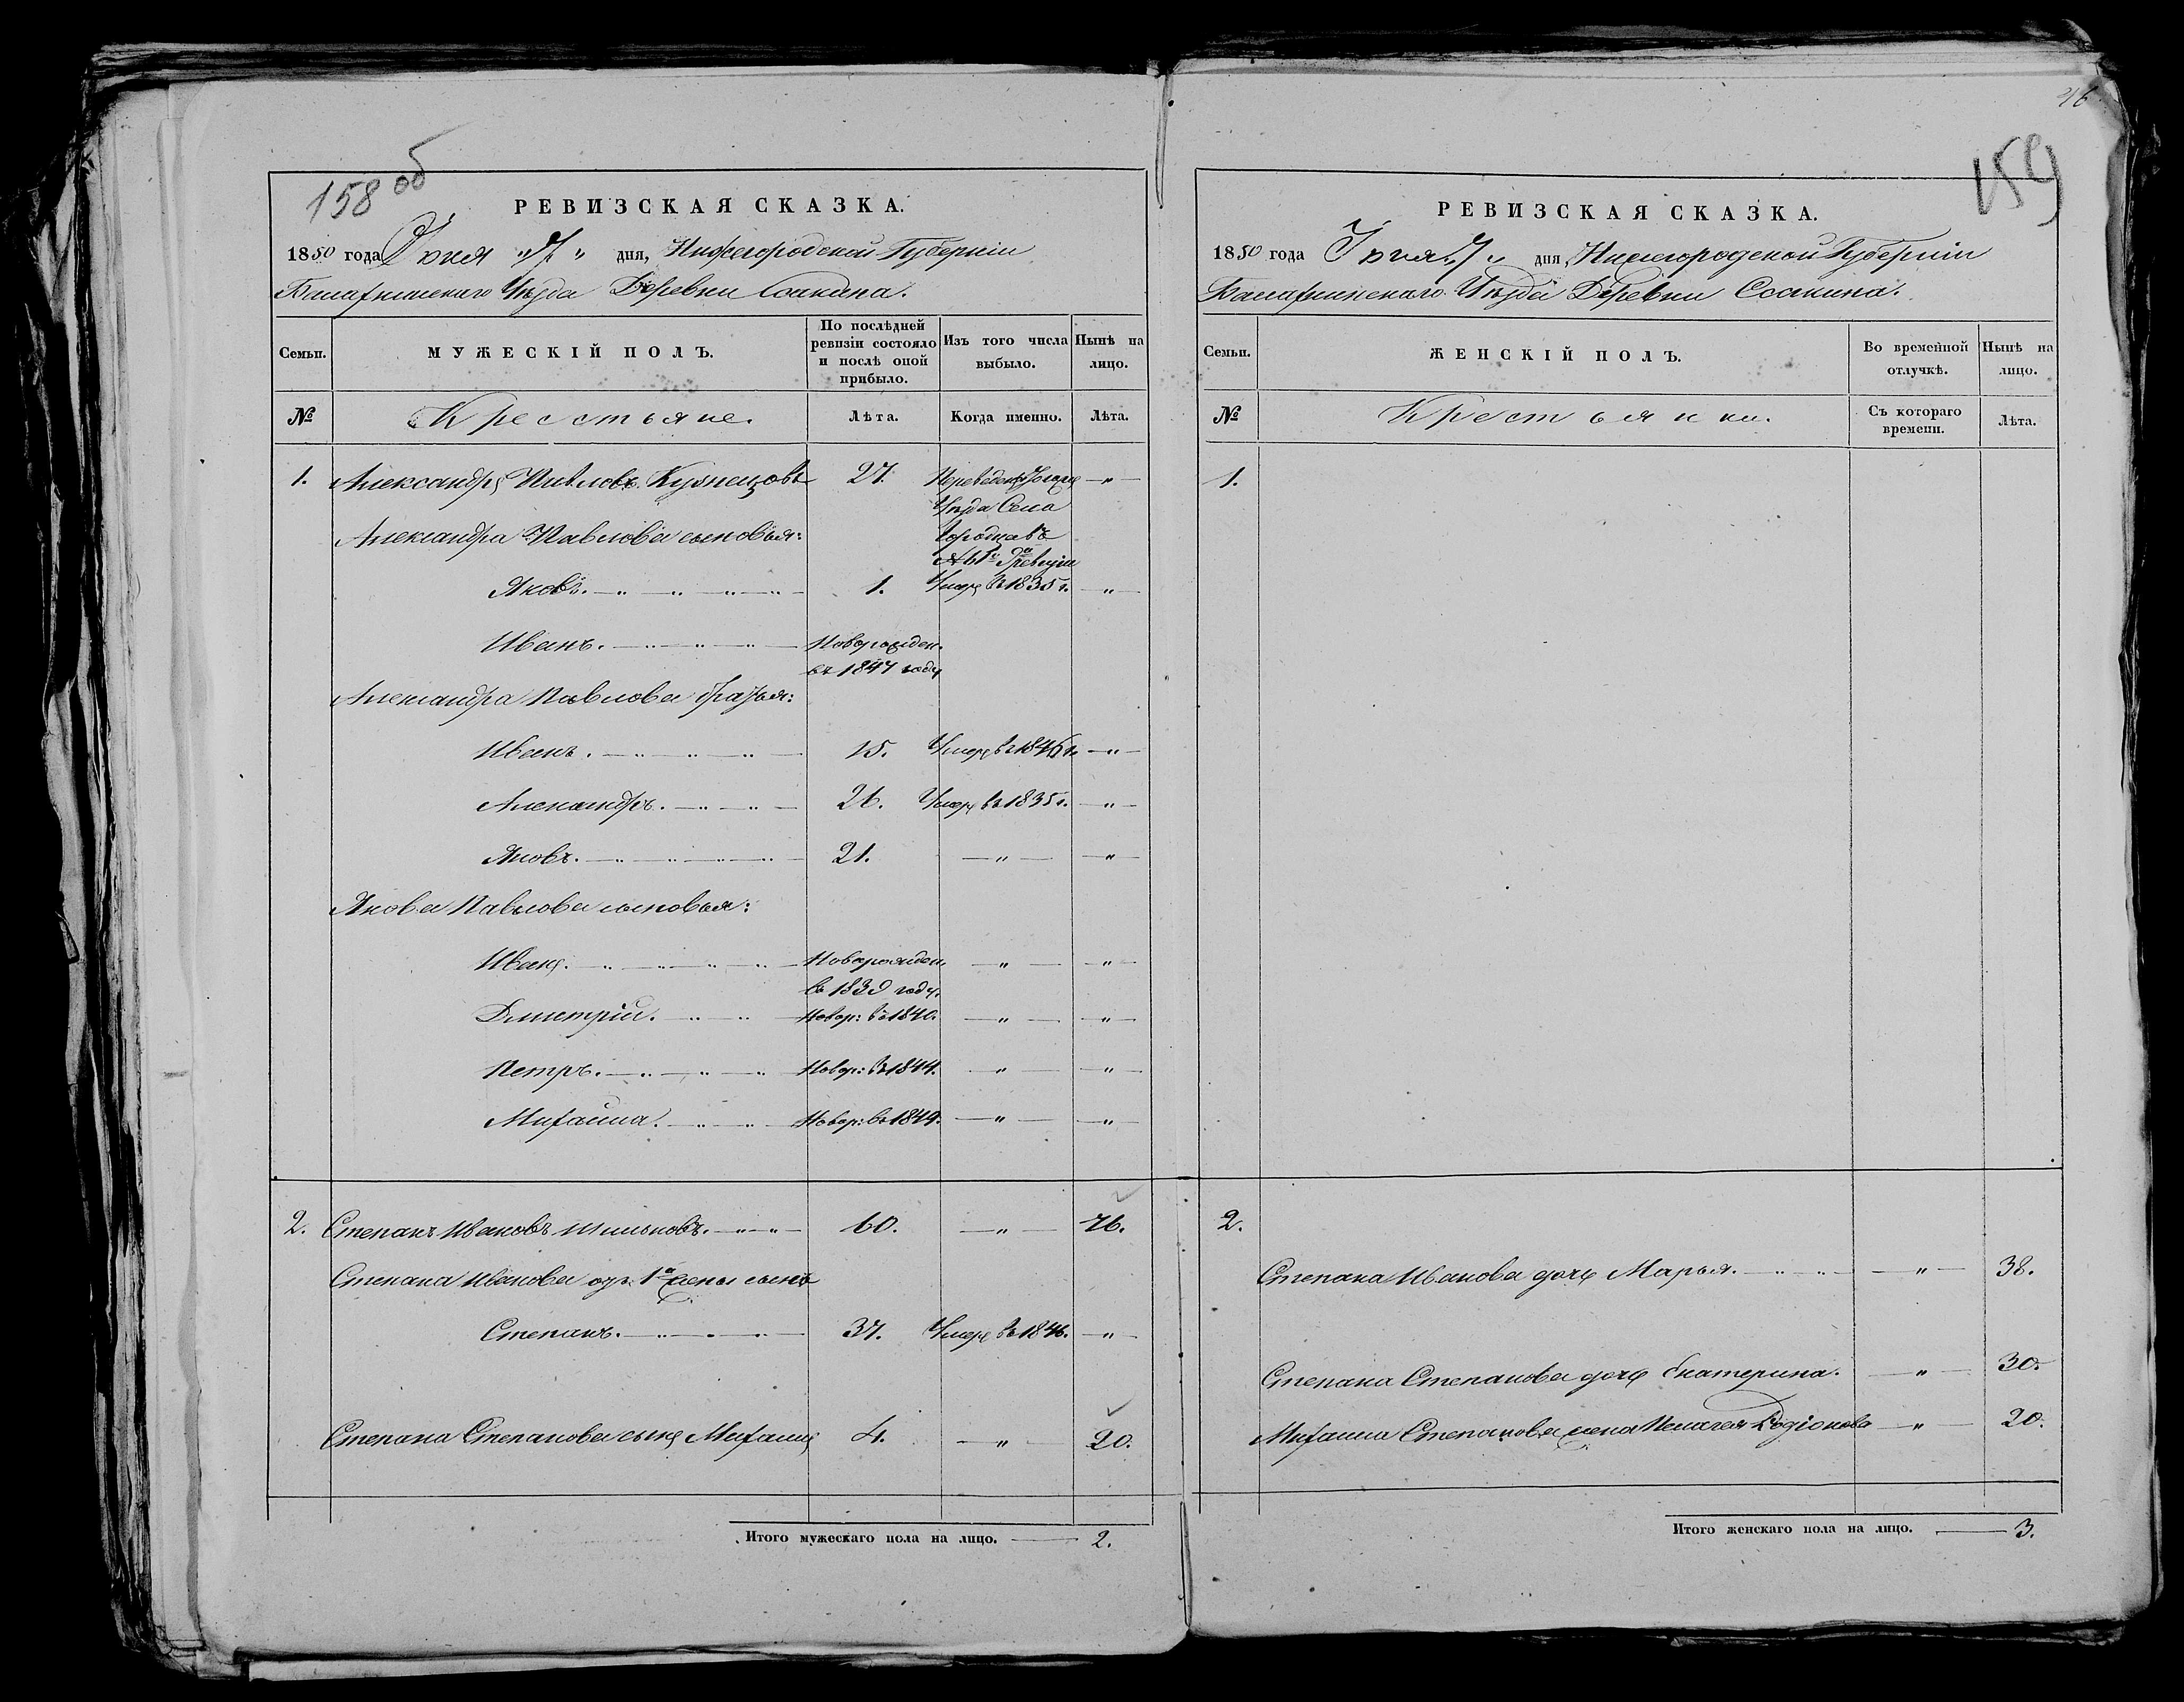 158 об
РЕВИЗСКАЯ СКАЗКА.
1850 года Іюня "7" дня, Нижегородской Губерніи
Балахнинскаго Уѣзда Деревни Соакина.
Семьи. МУЖЕСКІЙ ПОЛЪ. По послѣдней ревизіи состояло и послѣ оной прибыло. Изъ того числа выбыло. Нынѣ на лицо.
№ Крестьяне. Лѣта. Когда именно. Лѣта.
1. Александръ Павловъ Кузнецовъ 27. Переведенъ
Уѣзда Села
Александра Павлова сыновья: Городца въ
Яковъ. 1. Умеръ въ 1835 г. "
Иванъ. Новорожден.
въ 1847 году
Александра Павлова братья:
Иванъ. 15. Умеръ въ 1846 г. "
Александръ. 26. Умеръ въ 1835 г. "
Яковъ. 21. " "
Якова Павлова сыновья:
Иванъ. Новорожден. " "
въ 1839 году.
Дмитрій. Новор: въ 1840. " "
Петръ. Новор: въ 1844. " "
Михаила. Новор: въ 1849. " "
2. Степанъ Ивановъ Шильновъ. 60. " 76.
Степана Иванова отъ 1й жены сынъ
Степанъ. 37. Умеръ въ 1846. "
Степана Степанова сынъ Михаилъ 4. " 20.
Итого мужескаго пола на лицо. 2.
46
159
РЕВИЗСКАЯ СКАЗКА.
1850 года Іюня "7" дня, Нижегородской Губерніи
Балахнинскаго Уѣзда Деревни Соакина.
Семьи. ЖЕНСКІЙ ПОЛЪ. Во временной отлучкѣ. Нынѣ на лицо.
№ Крестьянки. Съ котораго времени. Лѣта.
1.
2.
Степана Иванова дочь Марья. " 38.
Степана Степанова дочь Екатерина. " 30.
Михаила Степанова жена Пелагея Родіонова " 20.
Итого женскаго пола на лицо. 3.